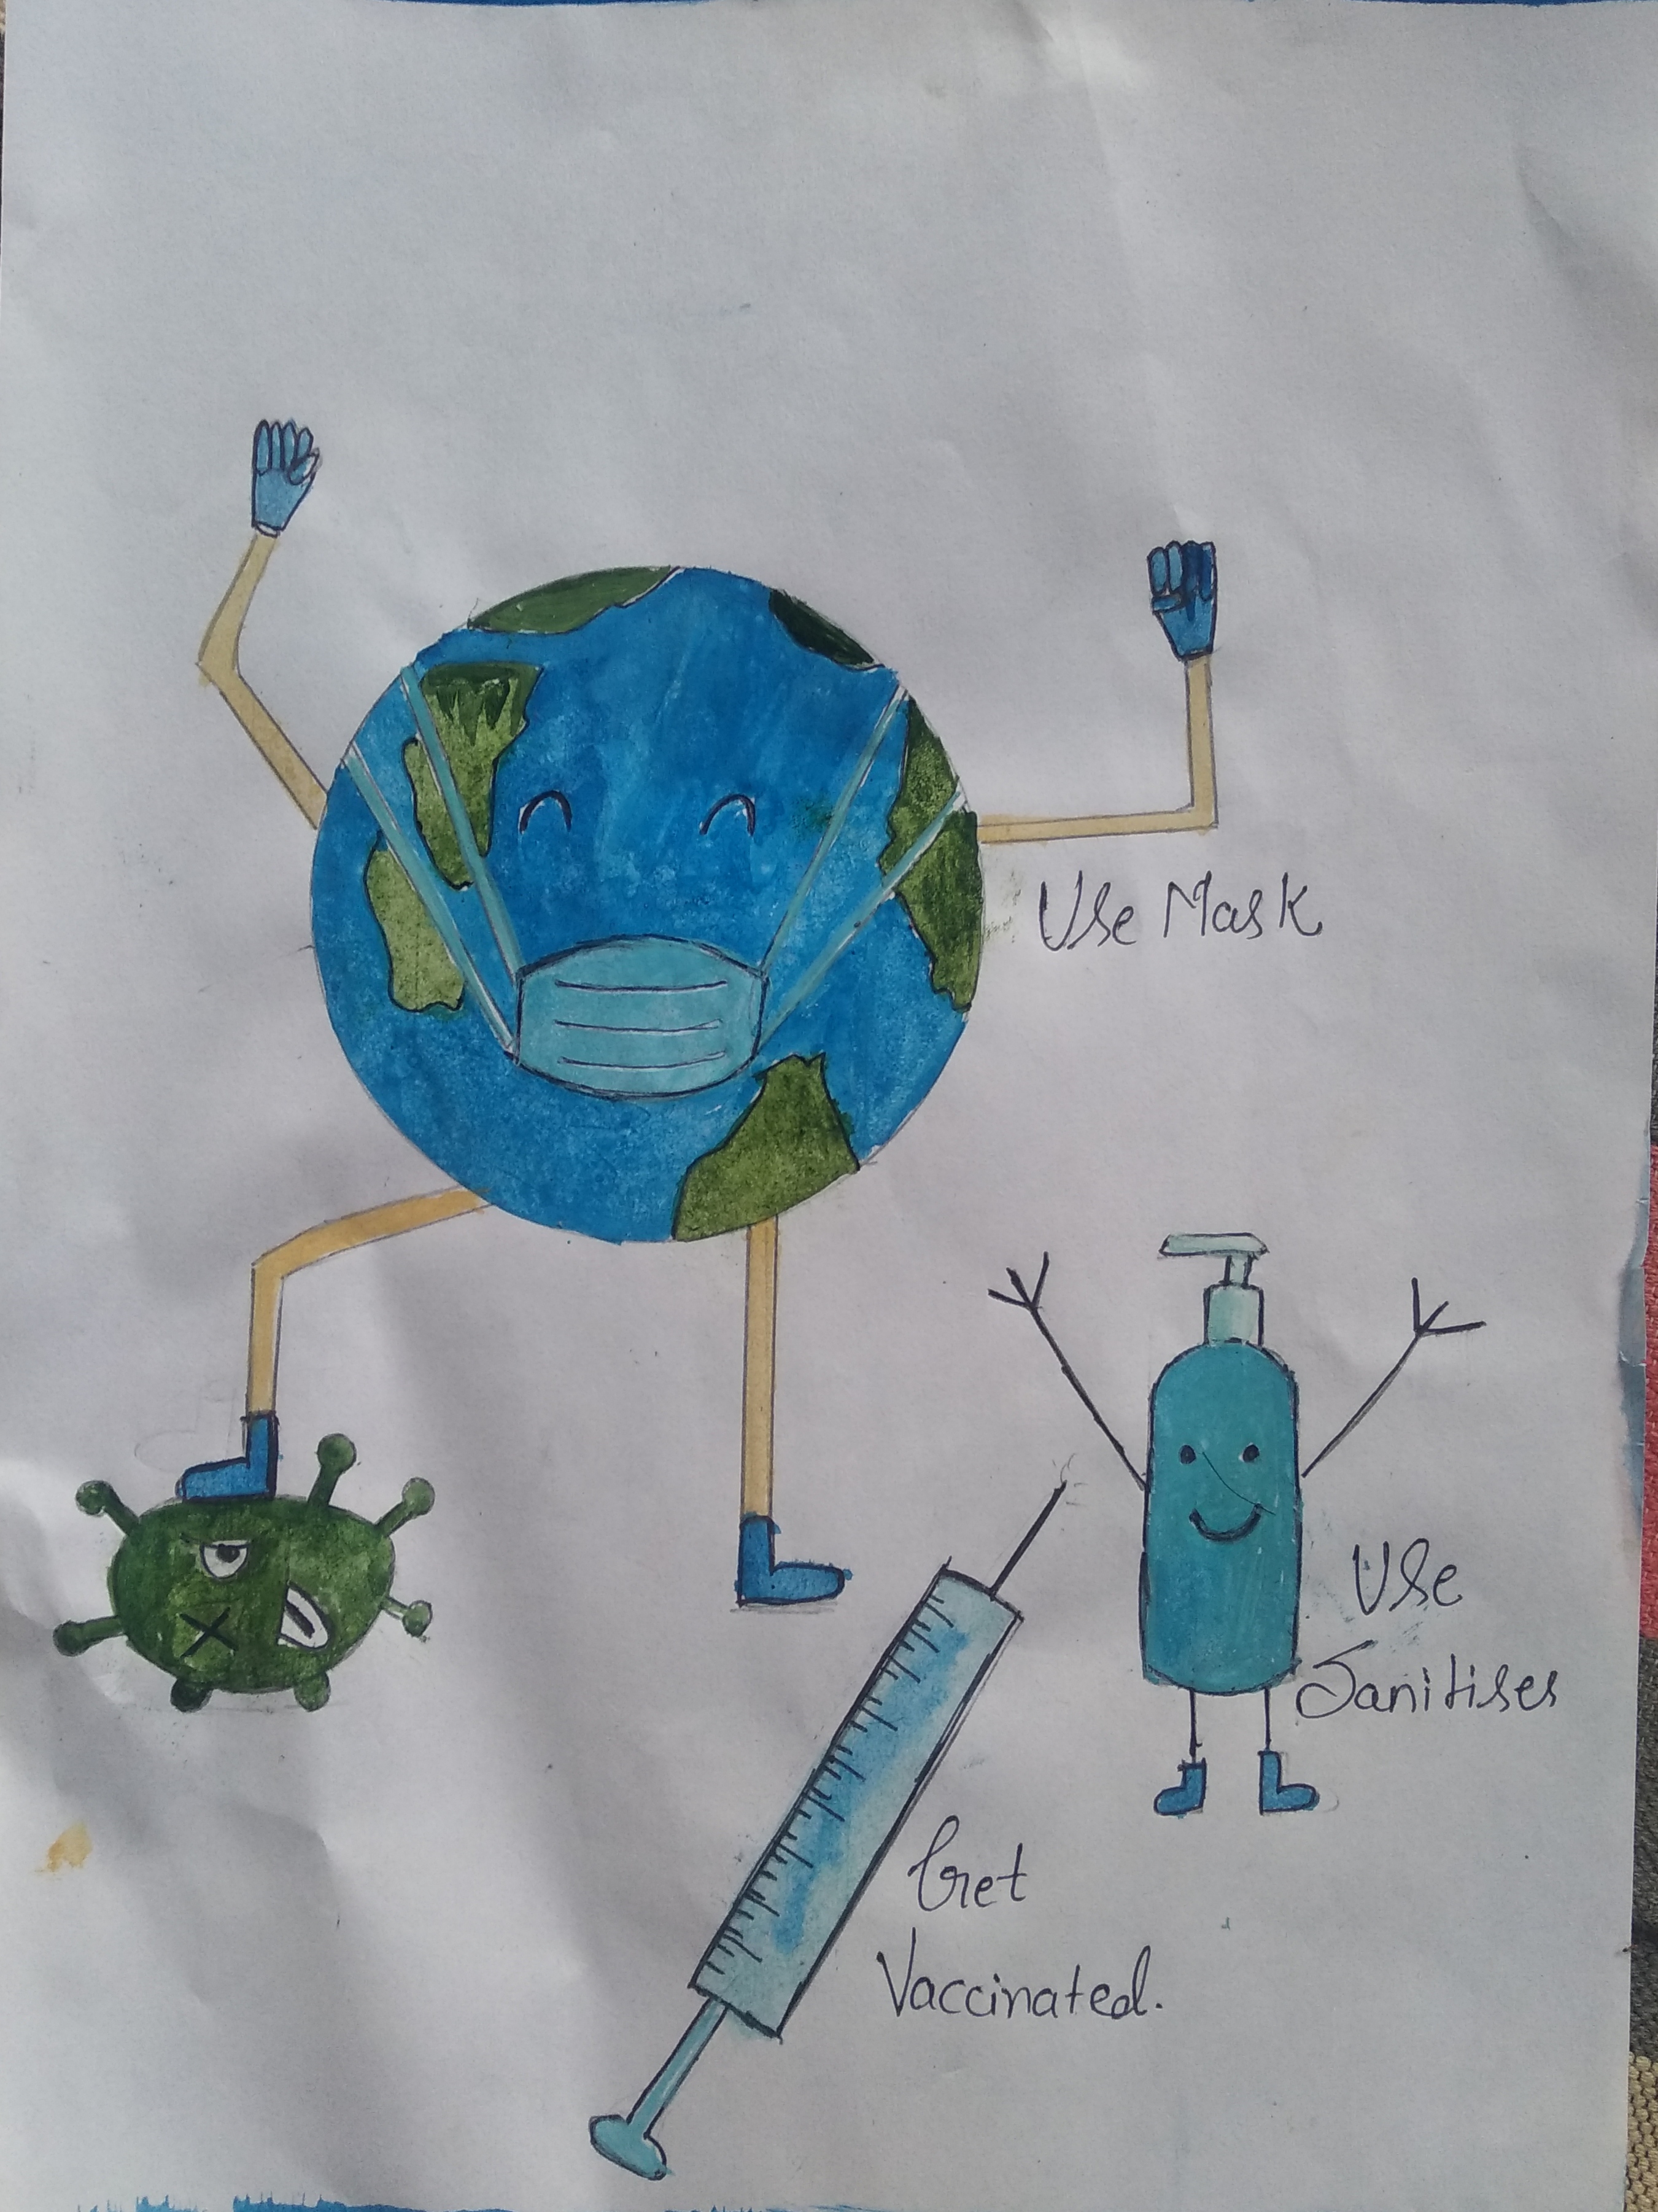 Use Mask
Use
Sanitiser
Get
Vaccinated.